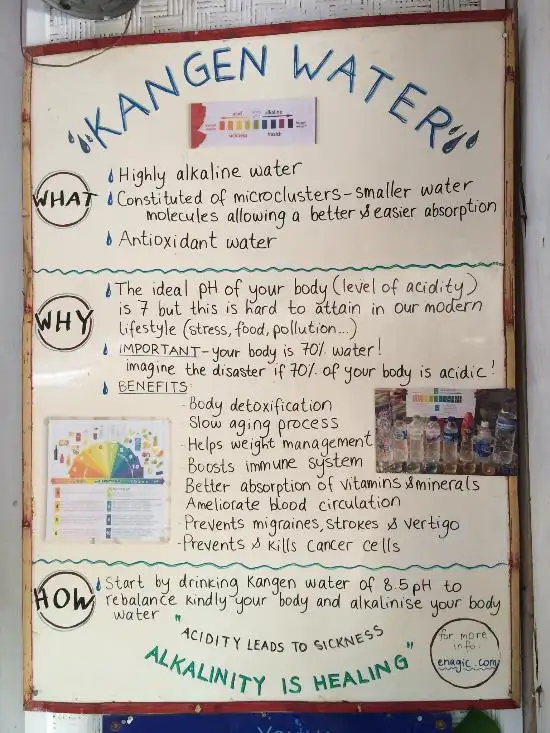 "KANGEN WATER"
acid alkaline
sickness health
WHAT
Highly alkaline water
Constituted of microclusters - smaller water
molecules allowing a better & easier absorption
Antioxidant water
WHY
The ideal pH of your body (level of acidity)
is 7 but this is hard to attain in our modern
lifestyle (stress, food, pollution...)
IMPORTANT - your body is 70% water!
imagine the disaster if 70% of your body is acidic!
BENEFITS
- Body detoxification
- Slow aging process
- Helps weight management
- Boosts immune system
- Better absorption of vitamins & minerals
- Ameliorate blood circulation
- Prevents migraines, strokes & vertigo
- Prevents & kills cancer cells
HOW
Start by drinking Kangen water of 8.5 pH to
rebalance kindly your body and alkalinise your body
water
"ACIDITY LEADS TO SICKNESS
ALKALINITY IS HEALING"
for more
info:
enagic.com